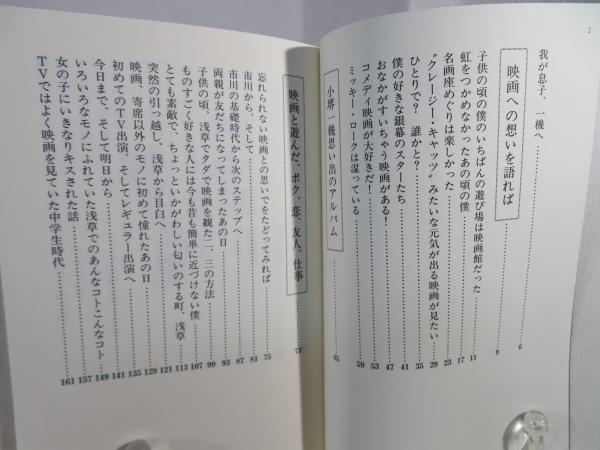 2
我が息子、一機へ……6
映画への想いを語れば……9
子供の頃の僕のいちばんの遊び場は映画館だった……11
虹をつかめなかったあの頃の僕……17
名画座めぐりは楽しかった……23
"クレージー・キャッツ"みたいな元気が出る映画が見たい……29
ひとりで？　誰かと？……35
僕の好きな銀幕のスターたち……41
おなかがすいちゃう映画がある！……47
コメディ映画が大好きだ！……53
ミッキー・ロークは湿っている……59
小堺一機思い出のアルバム……65
映画と遊んだ、ボク、恋、友人、仕事……73
忘れられない映画との思いでをたどってみれば……75
市川から、そして……81
市川の基礎時代から次のステップへ……87
両親が友だちになってしまったあの日……93
子供の頃、浅草でタダで映画を観た二、三の方法……99
ものすごく好きな人には今も昔も簡単に近づけない僕……107
とても素敵で、ちょっといかがわしい匂いのする町、浅草……113
突然の引っ越し、浅草から目白へ……121
映画、寄席以外のモノに初めて憧れたあの日……129
初めてのTV出演、そしてレギュラー出演へ……135
今日まで、そして明日から……141
いろいろなモノにふれていた浅草でのあんなコトこんなコト……149
女の子にいきなりキスされた話……157
TVではよく映画を見ていた中学生時代……161